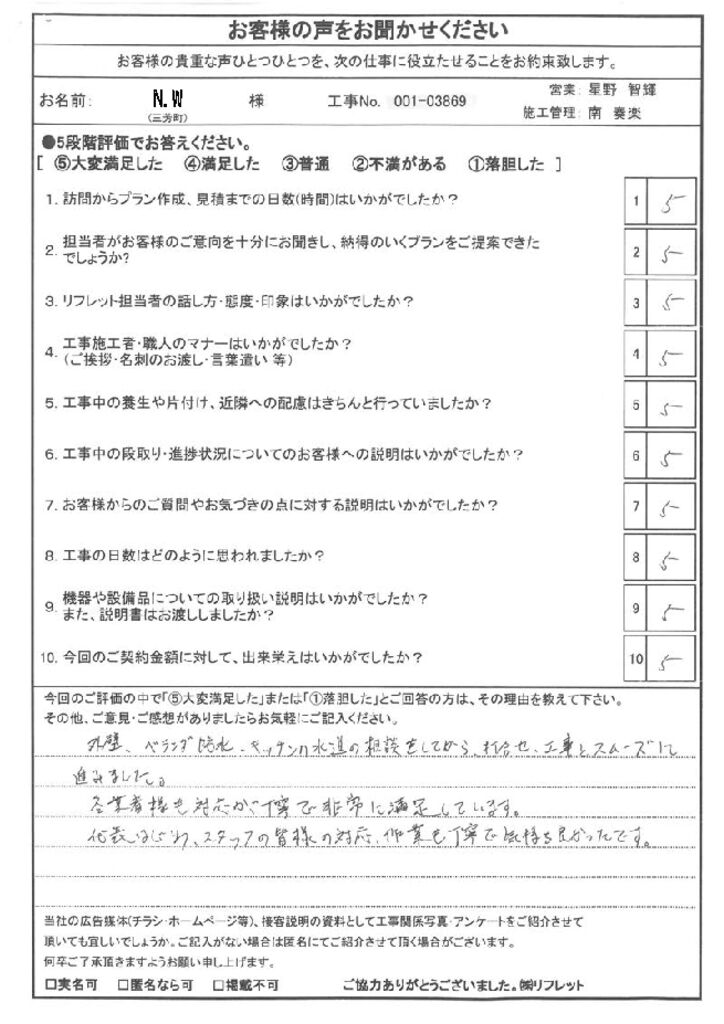 お客様の声をお聞かせください
お客様の貴重な声ひとつひとつを、次の仕事に役立たせることをお約束致します。
お名前: N.W 様 工事No. 001-03869 営業: 星野 智輝
(三芳町) 施工管理: 南 奏楽
●5段階評価でお答えください。
[ ⑤大変満足した ④満足した ③普通 ②不満がある ①落胆した ]
1. 訪問からプラン作成、見積までの日数(時間)はいかがでしたか? 1 5
2. 担当者がお客様のご意向を十分にお聞きし、納得のいくプランをご提案できた
でしょうか? 2 5
3. リフレット担当者の話し方・態度・印象はいかがでしたか? 3 5
4. 工事施工者・職人のマナーはいかがでしたか?
(ご挨拶・名刺のお渡し・言葉遣い 等) 4 5
5. 工事中の養生や片付け、近隣への配慮はきちんと行っていましたか? 5 5
6. 工事中の段取り・進捗状況についてのお客様への説明はいかがでしたか? 6 5
7. お客様からのご質問やお気づきの点に対する説明はいかがでしたか? 7 5
8. 工事の日数はどのように思われましたか? 8 5
9. 機器や設備品についての取り扱い説明はいかがでしたか?
また、説明書はお渡ししましたか? 9 5
10. 今回のご契約金額に対して、出来栄えはいかがでしたか? 10 5
今回のご評価の中で「⑤大変満足した」または「①落胆した」とご回答の方は、その理由を教えて下さい。
その他、ご意見・ご感想がありましたらお気軽にご記入ください。
外壁、ベランダ防水、キッチンの水道の相談をしてから、打合せ、工事とスムーズに
進みました。
各業者様も対応が丁寧で非常に満足しています。
代表はじめ、スタッフの皆様の対応、作業も丁寧で気持ち良かったです。
当社の広告媒体(チラシ・ホームページ等)、接客説明の資料として工事関係写真・アンケートをご紹介させて
頂いても宜しいでしょうか。ご記入がない場合は匿名にてご紹介させて頂く場合がございます。
何卒ご了承頂きますようお願い申し上げます。
□実名可 □匿名なら可 □掲載不可 ご協力ありがとうございました。㈱リフレット